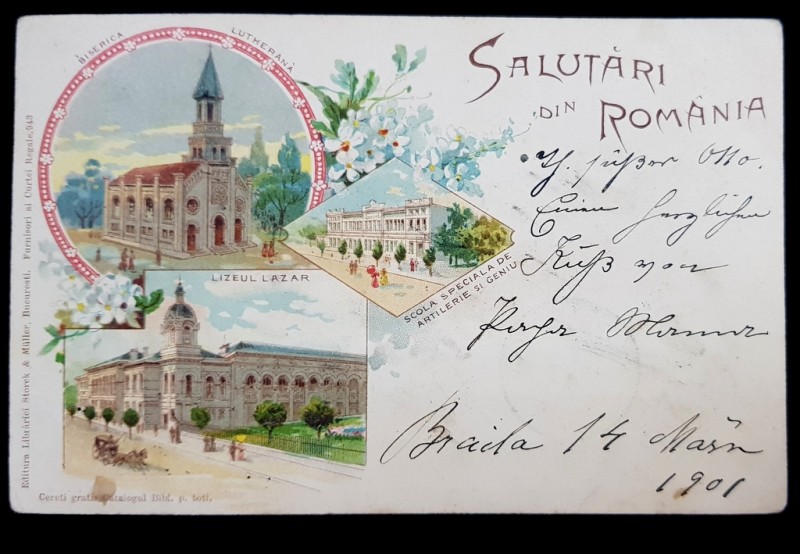 BISERICA LUTHERANĂ
SALUTĂRI
DIN ROMÂNIA
SCOLA SPECIALA DE
ARTILERIE ȘI GENIU
LIZEUL LAZAR
süßer Otto.
Einen herzlichen
Kuß von
Papa Mama
Braila 14 März
1901
Editura Librăriei Storck & Müller, Bucuresti. Furnisori ai Curtei Regale, 943
Cereti gratis Catalogul Bibl. p. toti.